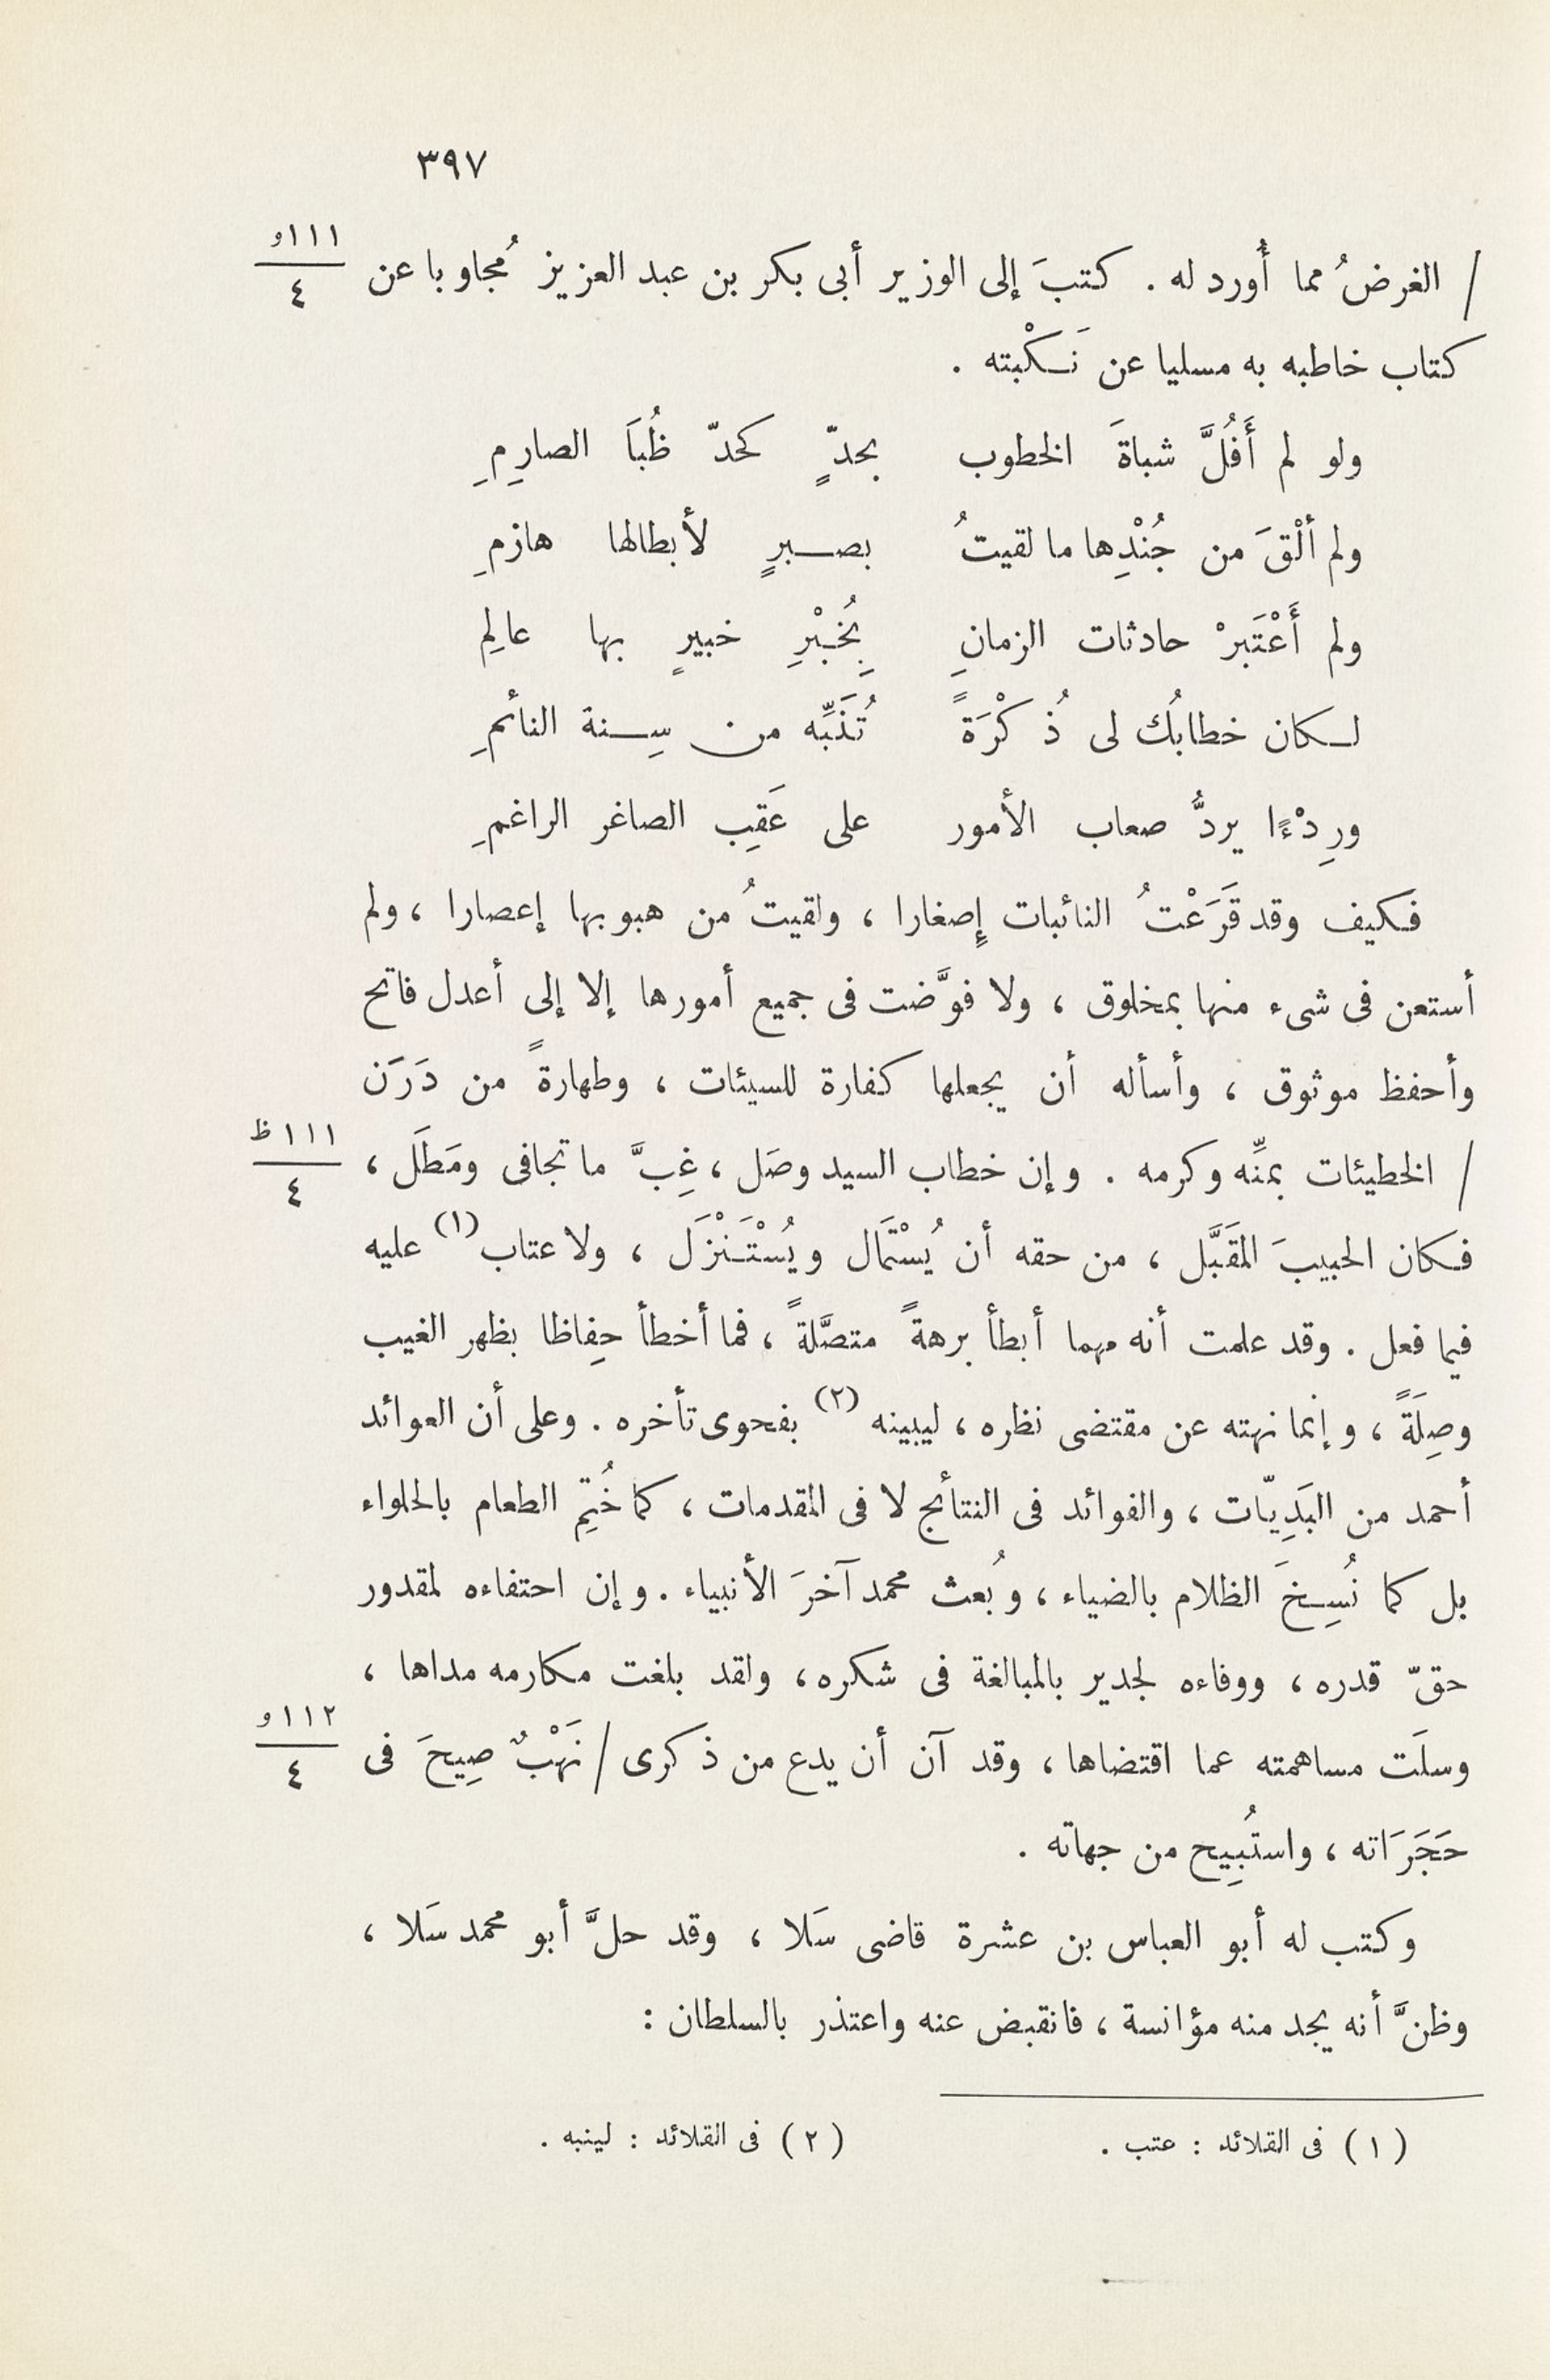 ٣٩٧
١١١و
٤
/ الغرضُ مما أُورد له . كتبَ إلى الوزير أبى بكر بن عبد العزيز مُجاوبا عن
كتاب خاطبه به مسليا عن نَكْبته .
ولو لم أَفُلَّ شباةَ الخطوب بجدٍّ كحدّ ظُبَا الصارِمِ
ولم ألْقَ من جُنْدِها ما لقيتُ بصبرٍ لأبطالها هازمِ
ولم أَعْتَبرْ حادثات الزمانِ بِخُبْرِ خبيرٍ بها عالِمِ
لكان خطابُك لى ذُكْرَةً تُنَبِّه من سِنة النائمِ
ورِدْءًا يردُّ صعاب الأمور على عَقِب الصاغر الراغمِ
فكيف وقد قَرَعْتُ النائبات إِصغارا ، ولقيتُ من هبوبها إعصارا ، ولم
أستعن فى شىء منها بمخلوق ، ولا فوَّضت فى جميع أمورها إلا إلى أعدل فاتح
وأحفظ موثوق ، وأسأله أن يجعلها كفارة للسيئات ، وطهارةً من دَرَن
١١١ظ
٤
/ الخطيئات بمنِّه وكرمه . وإن خطاب السيد وصَل ، غِبَّ ما تجافى ومَطَل ،
فكان الحبيبَ المقَبَّل ، من حقه أن يُسْتَمال ويُسْتَنْزَل ، ولا عتاب(١) عليه
فيما فعل . وقد علمت أنه مهما أبطأ برهةً متصَّلةً ، فما أخطأ حِفاظا بظهر الغيب
وصِلَةً ، وإنما نهته عن مقتضى نظره ، ليبينه(٢) بفحوى تأخره . وعلى أن العوائد
أحمد من البَدِيّات ، والفوائد فى النتائج لا فى المقدمات ، كما خُتِم الطعام بالحلواء
بل كما نُسِخَ الظلام بالضياء ، وبُعث محمد آخرَ الأنبياء . وإن احتفاءه لمقدور
حقّ قدره ، ووفاءه لجدير بالمبالغة فى شكره ، ولقد بلغت مكارمه مداها ،
١١٢و
٤
وسلَت مساهمته عما اقتضاها ، وقد آن أن يدع من ذكرى / نَهْبٌ صِيحَ فى
حَجَرَاته ، واستُبِيح من جهاته .
وكتب له أبو العباس بن عشرة قاضى سَلا ، وقد حلَّ أبو محمد سَلا ،
وظنَّ أنه يجد منه مؤانسة ، فانقبض عنه واعتذر بالسلطان :
(١) فى القلائد : عتب . (٢) فى القلائد : لينبه .